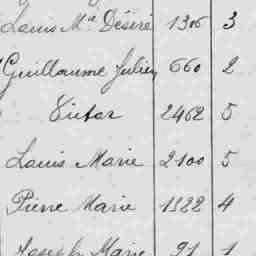 Louis Mie Désiré 1306 3
Guillaume Julien 660 2
Victor 2462 5
Louis Marie 2100 5
Pierre Marie 1522 4
Joseph Marie 91 1